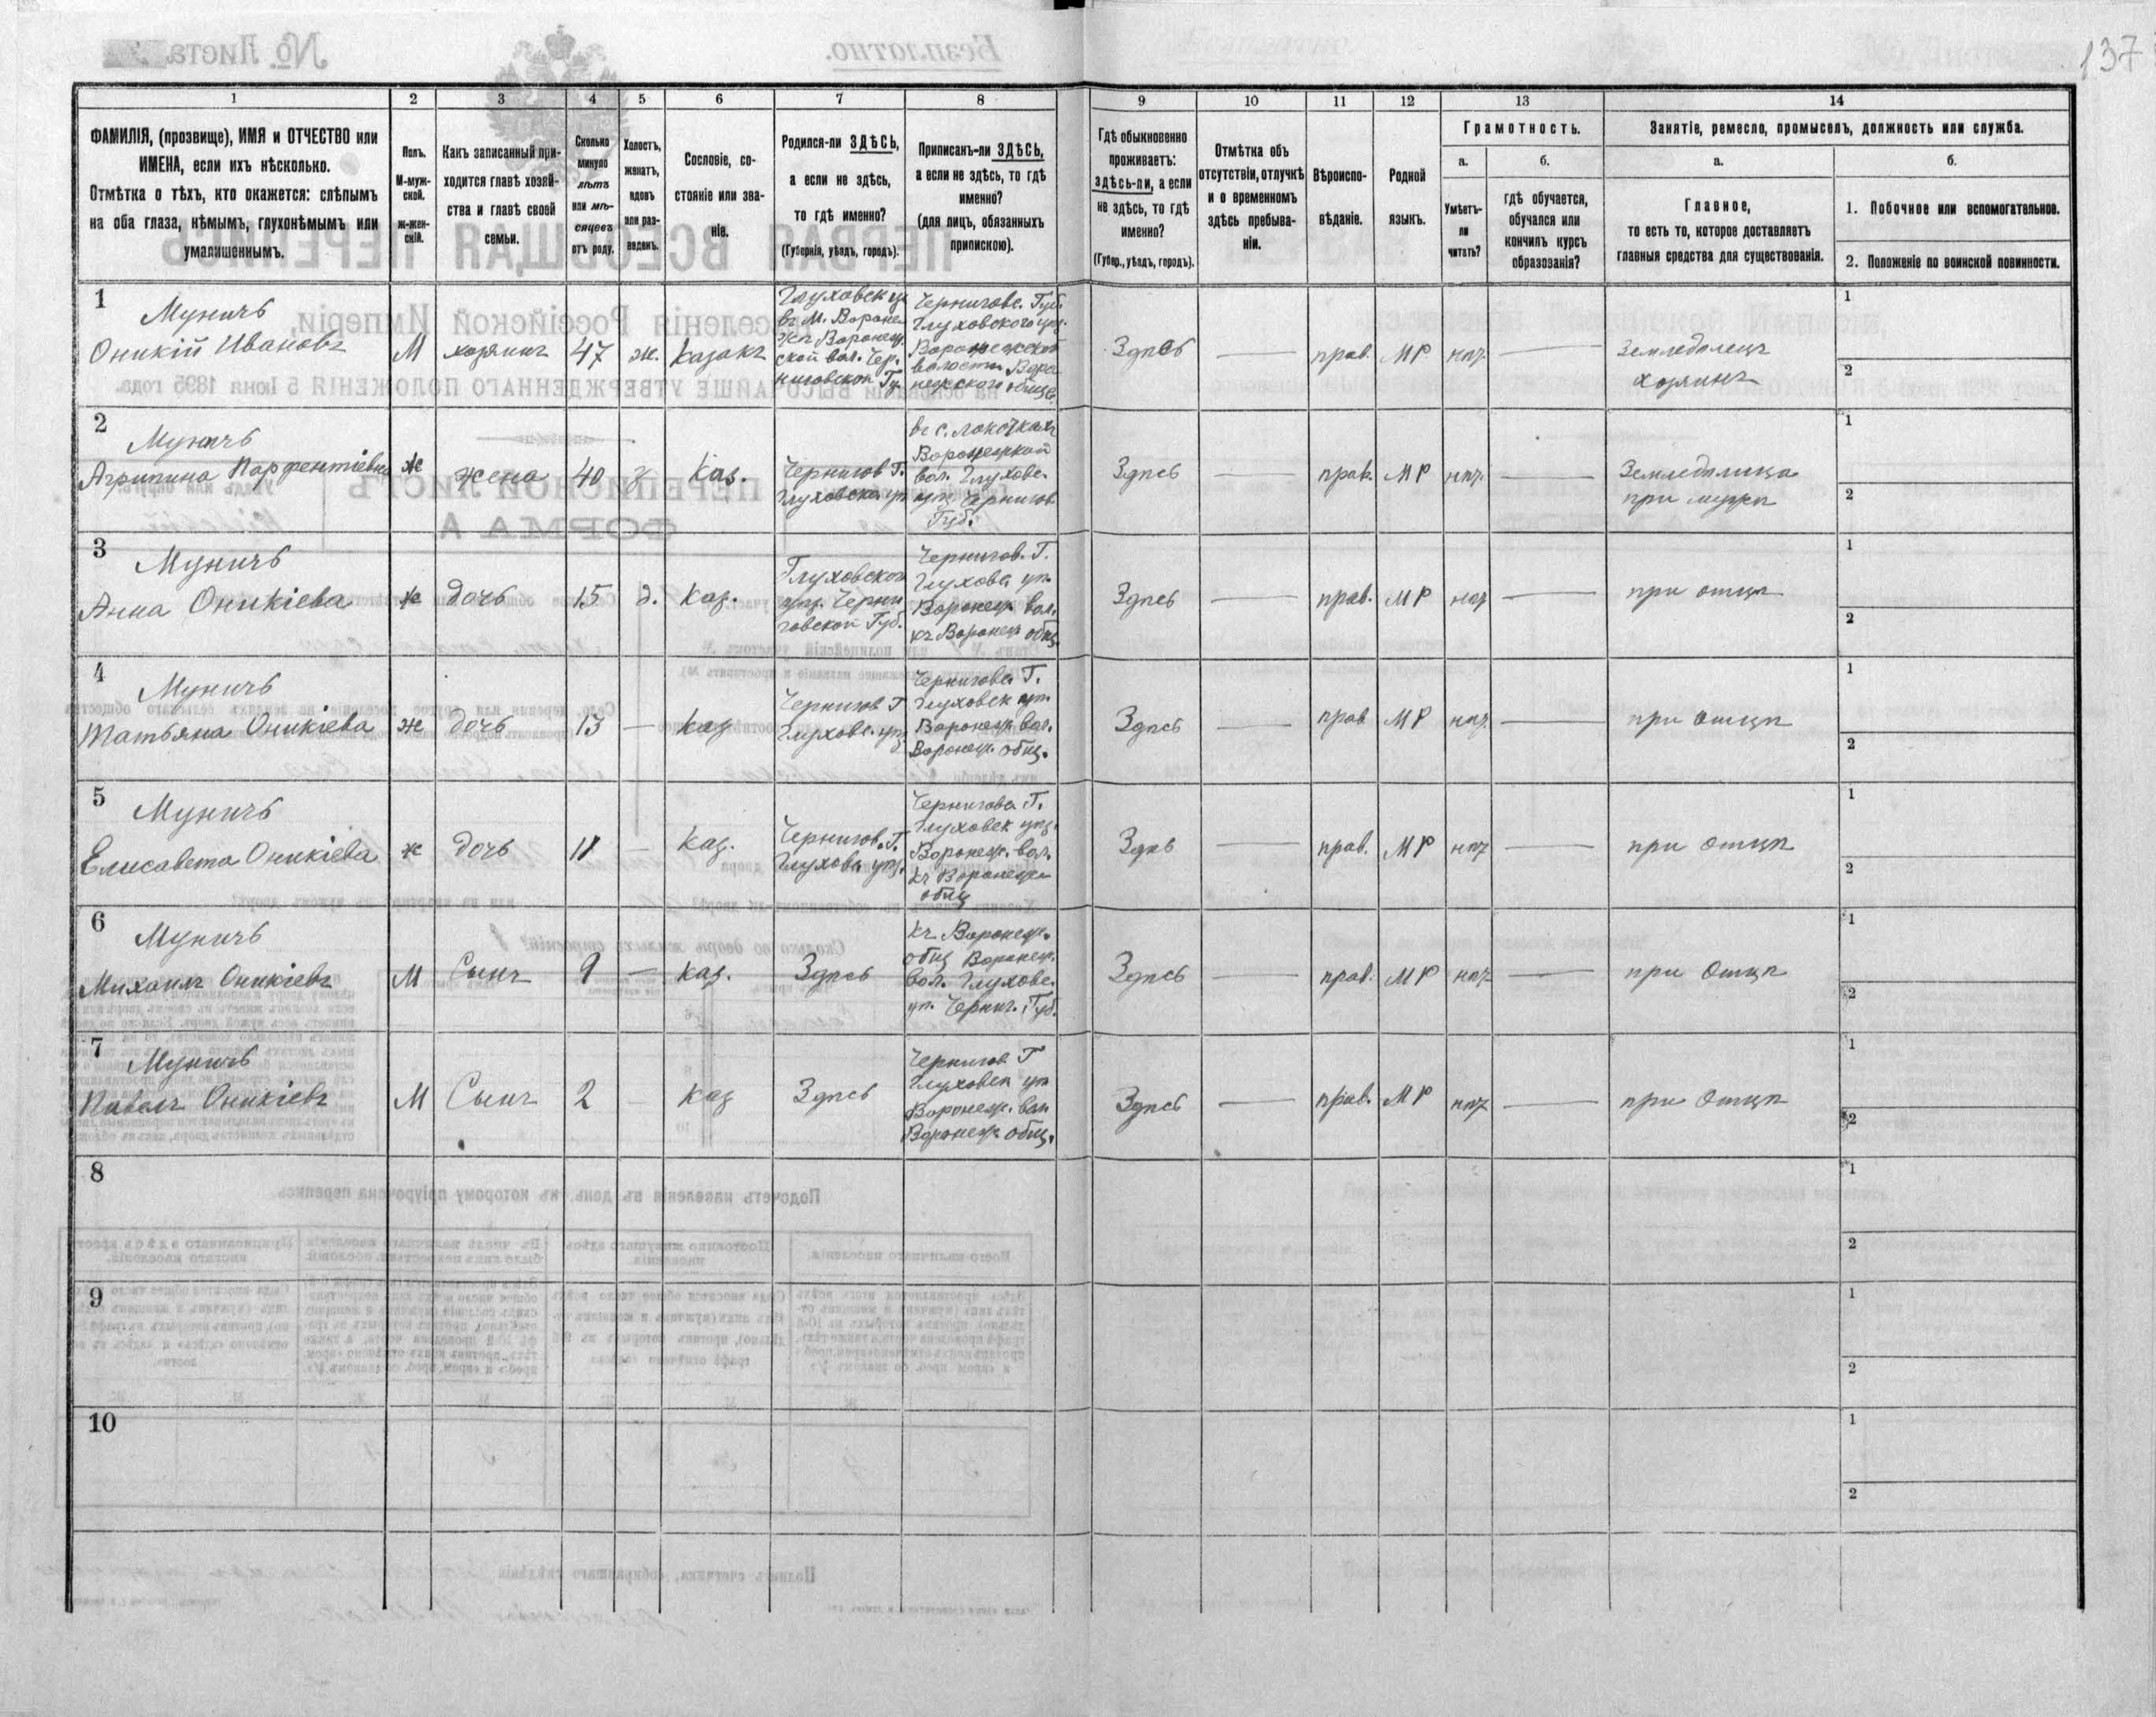 137
1
2
3
4
5
6
7
8
9
10
11
12
13
14
ФАМИЛІЯ, (прозвище), ИМЯ и ОТЧЕСТВО или
ИМЕНА, если ихъ нѣсколько.
Отмѣтка о тѣхъ, кто окажется: слѣпымъ
на оба глаза, нѣмымъ, глухонѣмымъ или
умалишеннымъ.
Полъ.
М-муж-
ской.
Ж-жен-
скій.
Какъ записанный при-
ходится главѣ хозяй-
ства и главѣ своей
семьи.
Сколько
минуло
лѣтъ
или мѣ-
сяцевъ
отъ роду.
Холостъ,
женатъ,
вдовъ
или раз-
веденъ.
Сословіе, со-
стояніе или зва-
ніе.
Родился-ли ЗДѢСЬ,
а если не здѣсь,
то гдѣ именно?
(Губернія, уѣздъ, городъ).
Приписанъ-ли ЗДѢСЬ,
а если не здѣсь, то гдѣ
именно?
(для лицъ, обязанныхъ
припискою).
Гдѣ обыкновенно
проживаетъ:
здѣсь-ли, а если
не здѣсь, то гдѣ
именно?
(Губер., уѣздъ, городъ).
Отмѣтка объ
отсутствіи, отлучкѣ
и о временномъ
здѣсь пребыва-
ніи.
Вѣроиспо-
вѣданіе.
Родной
языкъ.
Грамотность.
а.
б.
Умѣетъ-
ли
читать?
гдѣ обучается,
обучался или
кончилъ курсъ
образованія?
Занятіе, ремесло, промыселъ, должность или служба.
а.
б.
Главное,
то есть то, которое доставляетъ
главныя средства для существованія.
1. Побочное или вспомогательное.
2. Положеніе по воинской повинности.
1
Муничъ
Оникій Ивановъ
М
хозяинъ
47
ж.
казакъ
Глуховск уѣ
въ М. Вороне
жѣ Воронеж.
ской вол. Чер.
ниговской Гу
Черниговс. Губ.
Глуховского уѣз.
Воронежской
волости Воро
нежского общес.
Здѣсь
прав.
МР
нѣт.
Земледѣлецъ
хозяинъ
1
2
2
Муничъ
Агрипина Парфентіевна
же
жена
40
Каз.
Чернигов Г.
Глуховска уѣ
въ с. Локоткахъ
Воронежской
вол. Глуховс.
уѣз. Чернигов.
Губ.
Здѣсь
прав.
МР
нѣт.
Земледѣлица
при мужѣ
1
2
3
Муничъ
Анна Оникіева
ж
дочь
15
д.
Каз.
Глуховского
уѣз. Черни
говской Губ.
Чернигов. Г.
Глухова уѣ.
Воронеж. вол.
къ Воронеж общ.
Здѣсь
прав.
МР
нѣт
при отцѣ
1
2
4
Муничъ
Татьяна Оникіева
ж
дочь
13
каз
Чернигов Г
Глуховс. уѣз
Чернигова Г.
Глуховск уѣ.
Воронеж. вол.
Воронеж. общ.
Здѣсь
прав
МР
нѣт.
при отцѣ
1
2
5
Муничъ
Елисавета Оникіева
ж
дочь
11
каз.
Чернигов. Г.
Глухова уѣз.
Чернигова Г.
Глуховск уѣз.
Воронеж. вол.
къ Воронеж
общ
Здѣсь
прав.
МР
нѣт
при отцѣ
1
2
6
Муничъ
Михаилъ Оникіевъ
М
Сынъ
9
каз.
Здѣсь
къ Воронеж.
общ Воронеж.
вол. Глуховс.
уѣ. Черниг. Губ.
Здѣсь
прав.
МР
нѣт
при Отцѣ
1
2
7
Муничъ
Павелъ Оникіевъ
М
Сынъ
2
каз
Здѣсь
Чернигов Г
Глуховск уѣ
Воронеж. вол
Воронеж общ.
Здѣсь
прав.
МР
нѣт
при Отцѣ
1
2
8
1
2
9
1
2
10
1
2